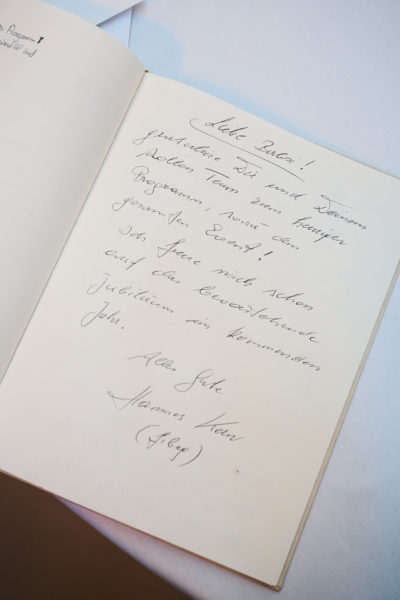 Programm
Liebe
gratuliere Dir und Deinem
tollen Team zum heurigen
Programm, sowie den
gesamten Event!
Ich freue mich schon
auf das bevorstehende
Jubiläum im kommenden
Jahr.
Alles Gute
Hannes